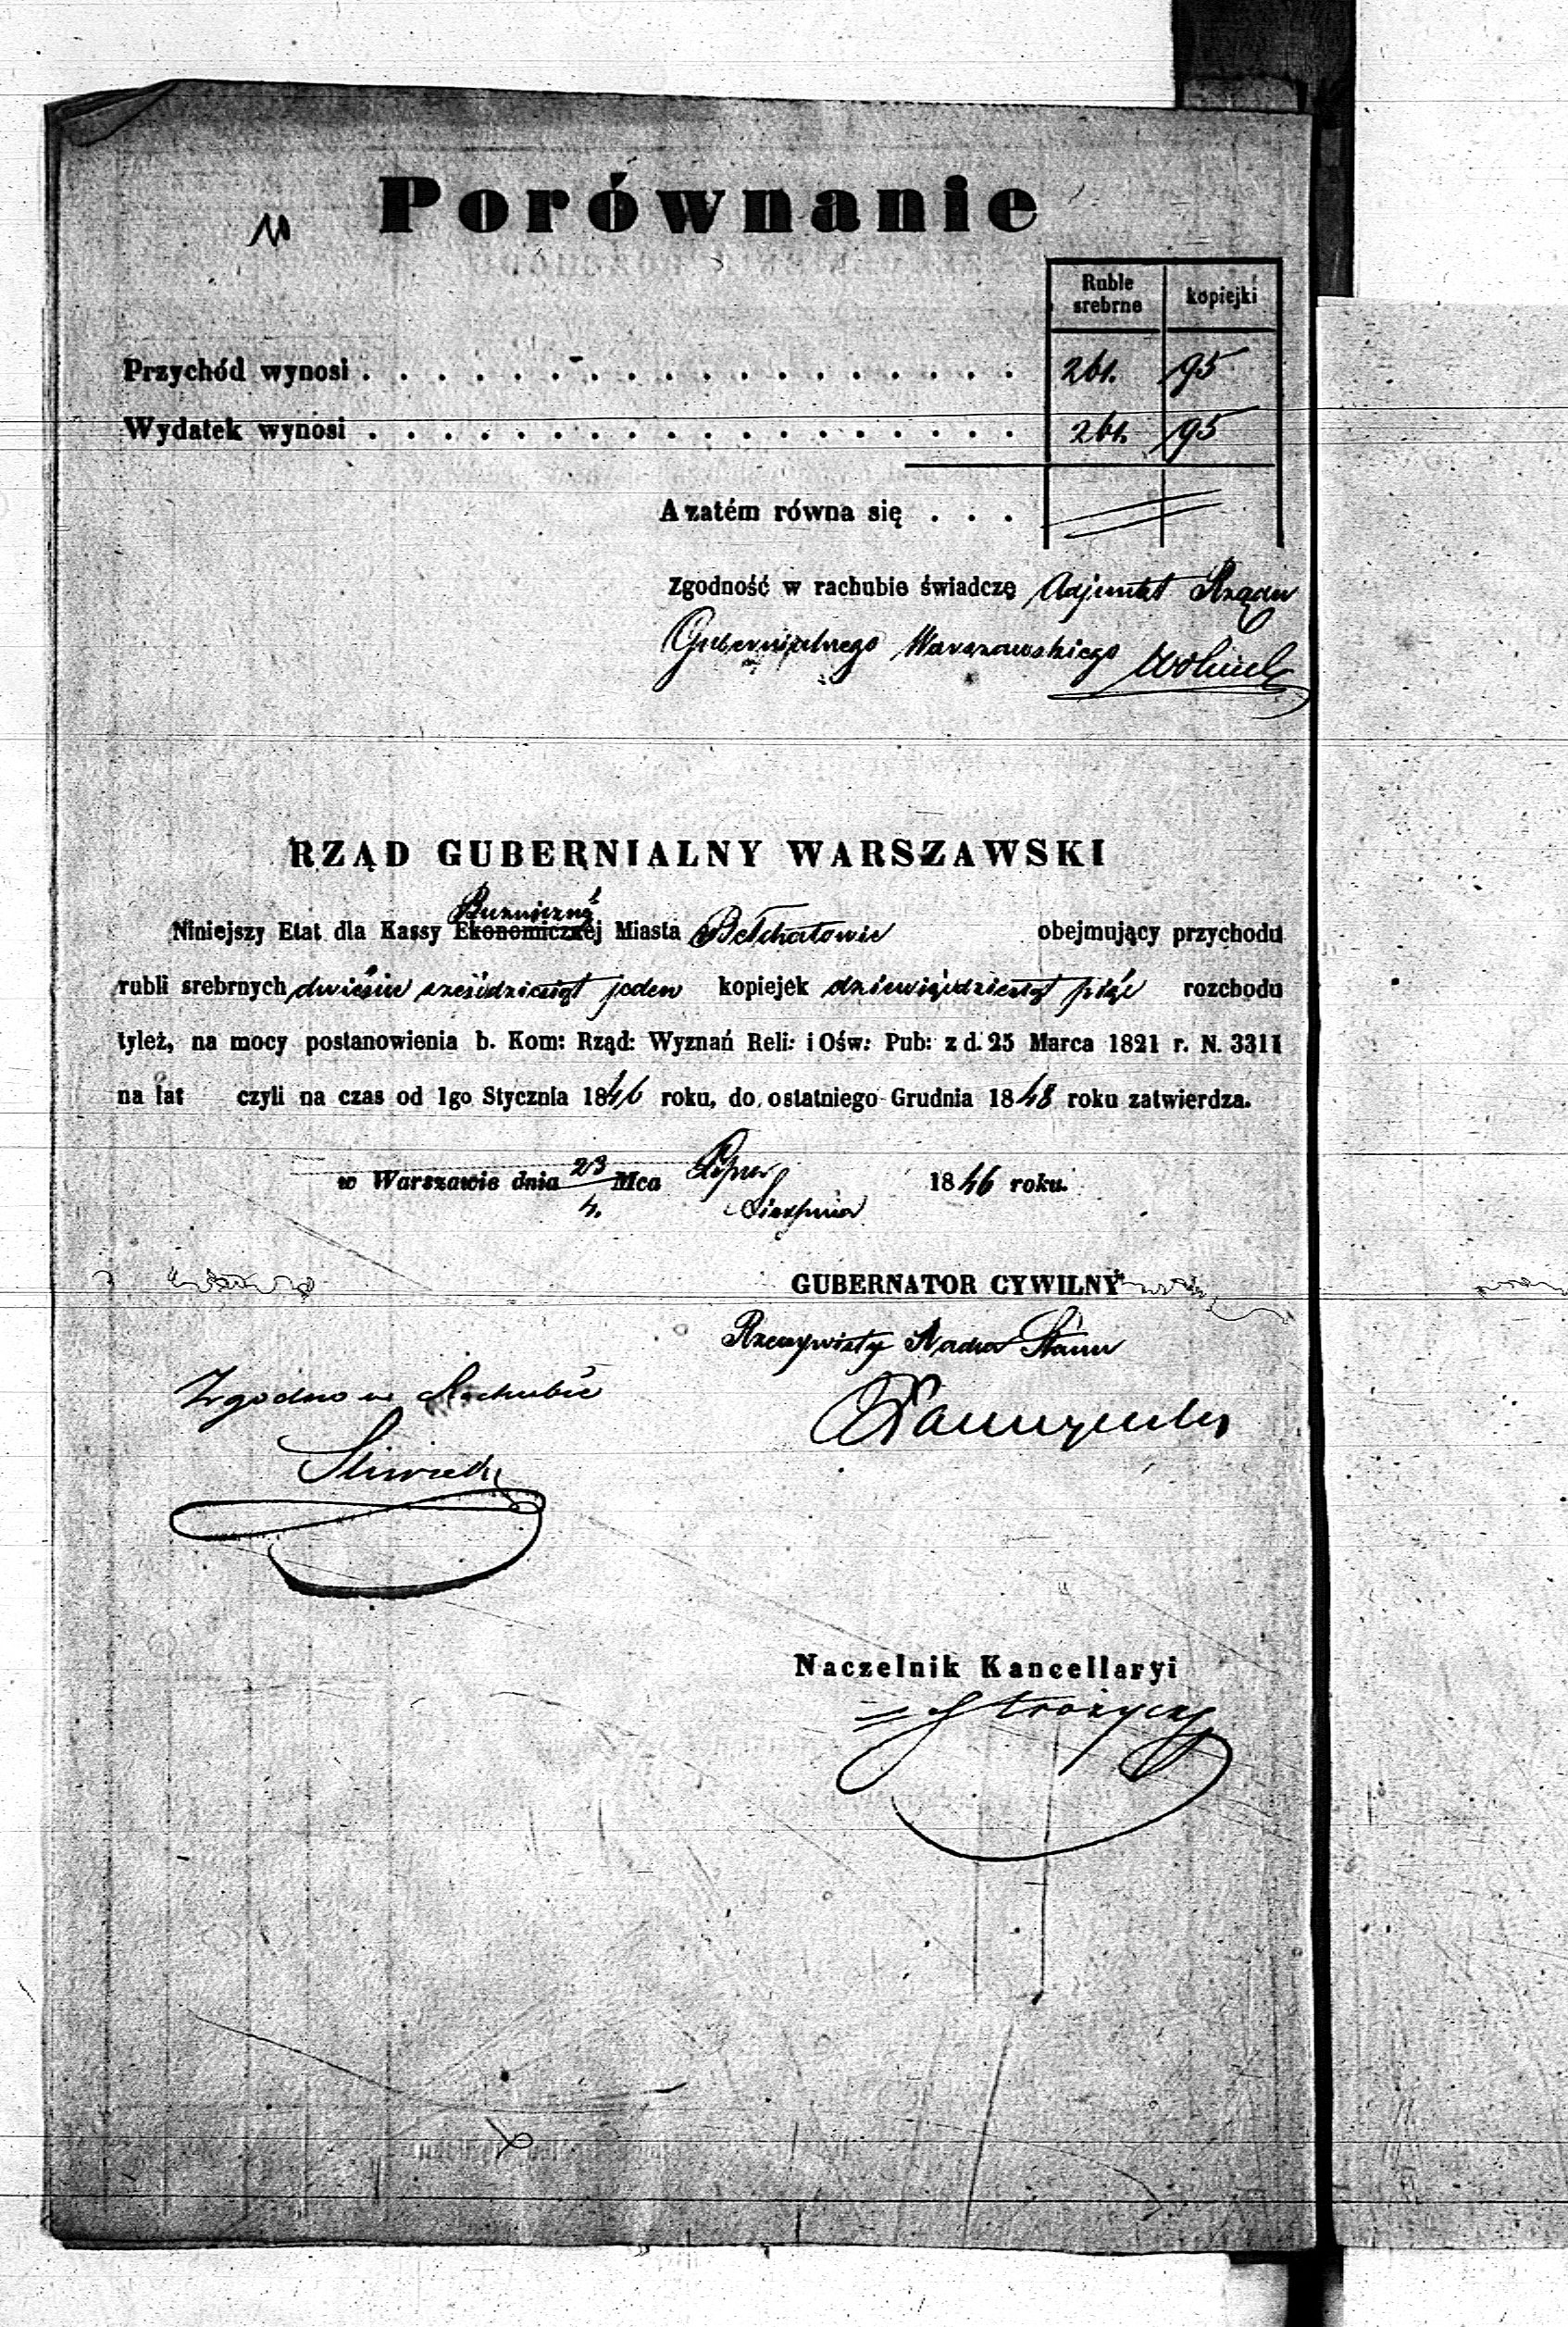 Porównanie
Ruble srebrne kopiejki
Przychód wynosi . . . . . . . . . . . . . . . . . . 261. 95
Wydatek wynosi . . . . . . . . . . . . . . . . . . 261. 95
A zatém równa się . . .
Zgodność w rachubie świadczę Adjunkt Rządu
Gubernijalnego Warszawskiego
RZĄD GUBERNIALNY WARSZAWSKI
Buzniczné
Niniejszy Etat dla Kassy Ekonomicznej Miasta Bełchatowie obejmujący przychodu
rubli srebrnych dwieście sześćdziesiąt jeden kopiejek dziewięćdziesiąt pięć rozchodu
tyleż, na mocy postanowienia b. Kom: Rząd: Wyznań Reli: i Ośw: Pub: z d. 25 Marca 1821 r. N. 3311
na lat czyli na czas od 1go Stycznia 1846 roku, do ostatniego Grudnia 1848 roku zatwierdza.
w Warszawie dnia 23 Mca Lipca 1846 roku.
4. Sierpnia
GUBERNATOR CYWILNY
Rzeczywisty Radca Stanu
Zgodno w Rachubie
Naczelnik Kancellaryi